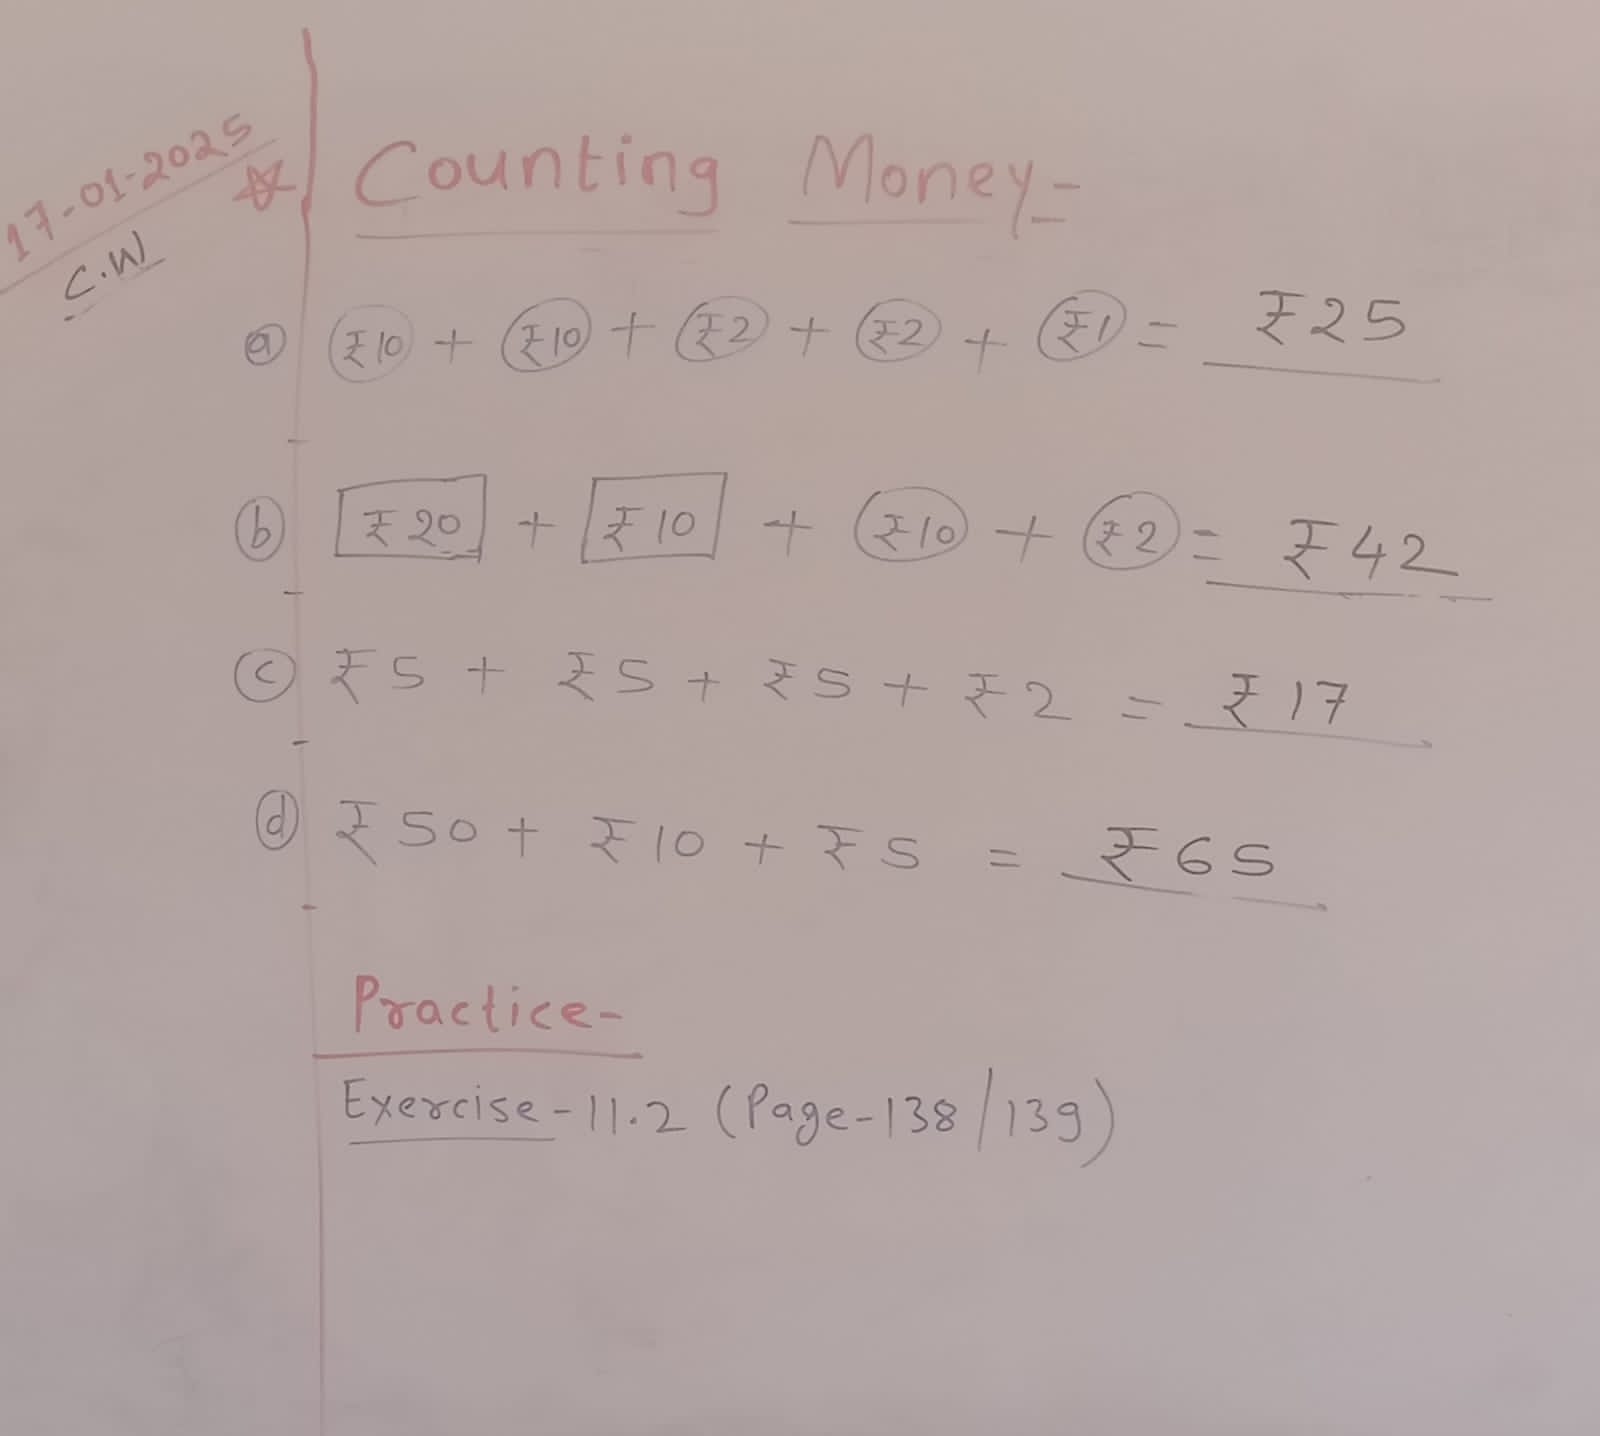 17-01-2025
C.W
Counting Money-
a ₹10 + ₹10 + ₹2 + ₹2 + ₹1 = ₹25
b ₹20 + ₹10 + ₹10 + ₹2 = ₹42
c ₹5 + ₹5 + ₹5 + ₹2 = ₹17
d ₹50 + ₹10 + ₹5 = ₹65
Practice-
Exercise-11.2 (Page-138/139)